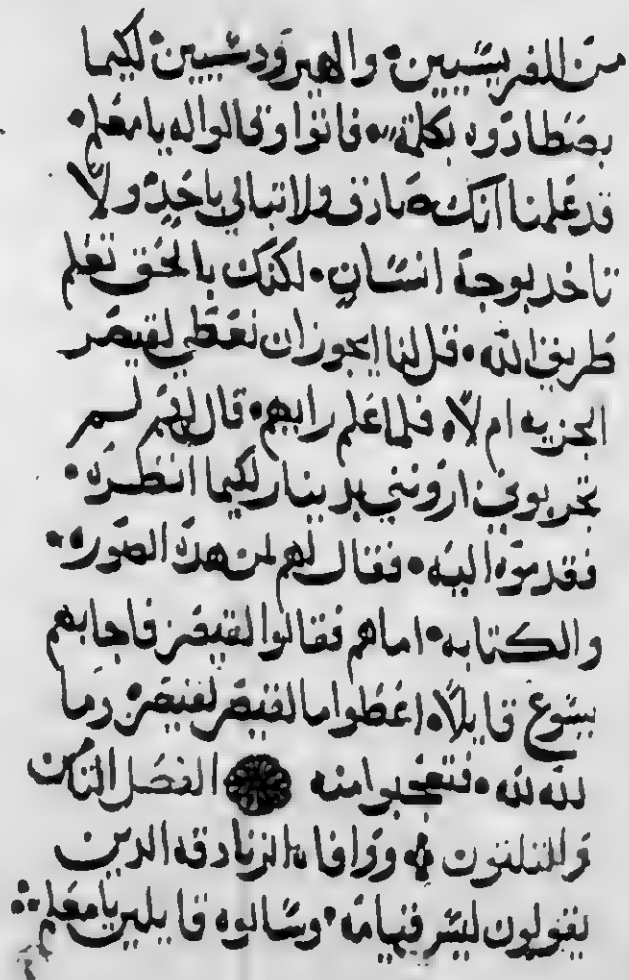 من الفريسيين• والهيرودسيين لكيما
يصطادوه بكلمة• فاتوا وقالوا له يا معلم•
قد علمنا انك صادق ولا تبالي باحد• ولا
تاخد بوجه انسان• لكنك بالحق تعلم
طريق الله• قل لنا ايجوز ان نعطي لقيصر
الجزيه ام لا• فلما علم رايهم• قال لهم لم
تجربوني اروني بدينار لكيما انظره•
فقدموه اليه• فقال لهم لمن هده الصوره•
والكتابه• اما هم فقالوا لقيصر فاجابهم
يسوع قايلا• اعطوا ما لقيصر لقيصر وما
لله لله• فتعجبوا منه الفصل الثامن
والثلثون ووافاه الزنادقه الدين
يقولون ليس قيامه• وسالوه قايلين يا معلم